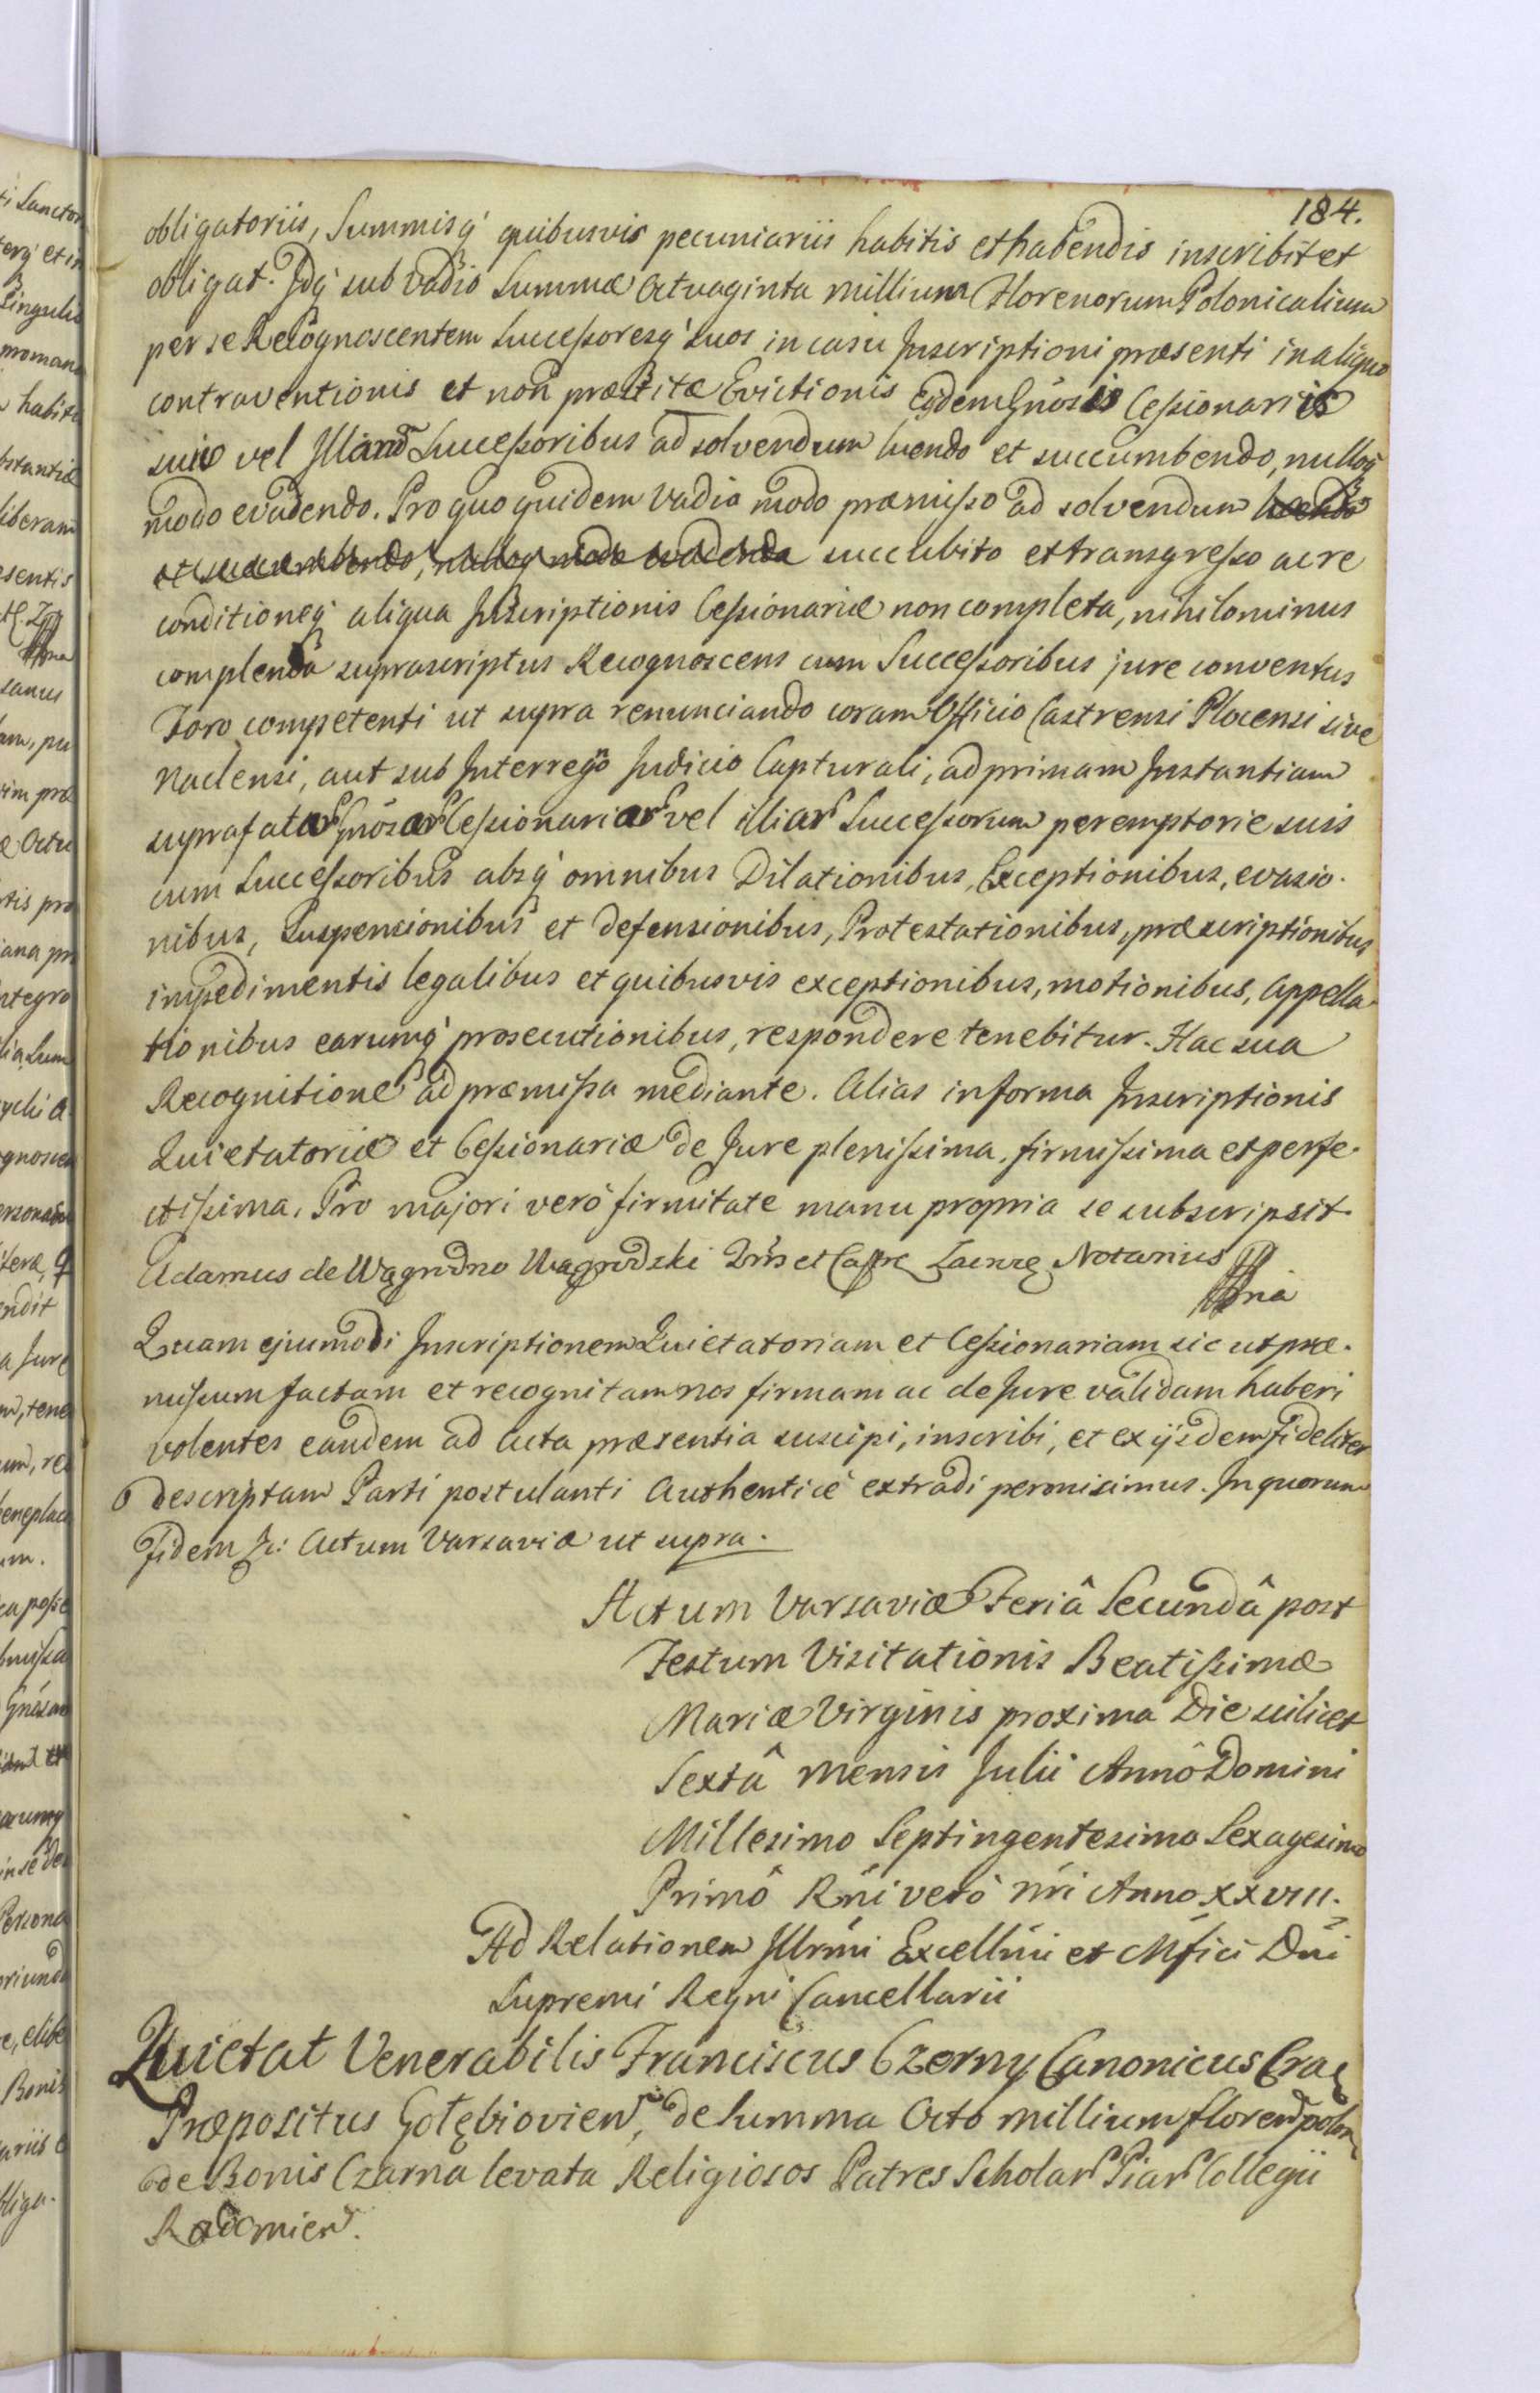 184.
obligatoriis, Summisq́ quibusvis pecuniariis habitis et habendis inscribit et
obligat. Idq́ sub vadio Summæ Octuaginta millium Florenorum Polonicalium
per se Recognoscentem Successoresq́ suos in casu Inscriptioni præsenti in aliquo
contraventionis et non præstitæ Evictionis Eisdem Gnôsis Cessionariis
suis vel Illarum Successoribus ad solvendum luendo et succumbendo, nulloq́
modo evadendo. Pro quo quidem vadio modo præmisso ad solvendum luendo
et succumbendo, nulloq́ modo evadendo succubito et transgresso ac re
conditioneq́ aliqua Inscriptionis Cessionariæ non completa, nihilominus
complenda suprascriptus Recognoscens cum Successoribus jure conventus
Foro competenti ut supra renunciando coram Officio Castrensi Plocensi sive
Naclensi, aut sub Interregño Judicio Capturali, ad primam Instantiam
suprafatar Gnôsar Cessionariar vel illiar Successorum peremptorie suis
cum Successoribus absq́ omnibus Dilationibus, Exceptionibus, evasio-
nibus, Suspensionibus et defensionibus, Protestationibus, præscriptionibus
impedimentis legalibus et quibusvis exceptionibus, motionibus, Appella-
tionibus earumq́ prosecutionibus, respondere tenebitur. Hac sua
Recognitione ad præmissa mediante. Alias in forma Inscriptionis
Quietatoriæ et Cessionariæ de Jure plenissima, firmissima et perfe-
ctissima. Pro majori verò firmitate manu propria se subscripsit
Adamus de Wągrodno Wągrodski Trr̃is et Castre Zacnrę Notarius
mpria
Quam ejusmodi Inscriptionem Quietatoriam et Cessionariam sic ut præ-
missum factam et recognitam nos firmam ac de Jure validam haberi
volentes eandem ad Acta præsentia suscipi, inscribi, et ex ijsdem fideliter
descriptam Parti postulanti Authenticè extradi permisimus. In quorum
fidem &c: Actum Varsaviæ ut supra.
Actum Varsaviæ Feriâ Secundâ post
Festum Visitationis Beatissimæ
Mariæ Virginis proxima Die scilicet
Sextâ mensis Julii Annô Domini
Millesimo Septingentesimo Sexagesimo
Primô Rñi verò nr̃i Anno XXVIII.
Ad Relationem Illr̃mi Excellm̃i et Mfici Dñi
Supremi Regni Cancellarii
Quietat Venerabilis Franciscus Czerny Canonicus Crac
Præpositus Gołębiovien, de Summa Octo millium floren polon
de Bonis Czarna levata Religiosos Patres Scholar Piar Collegii
Radomien.